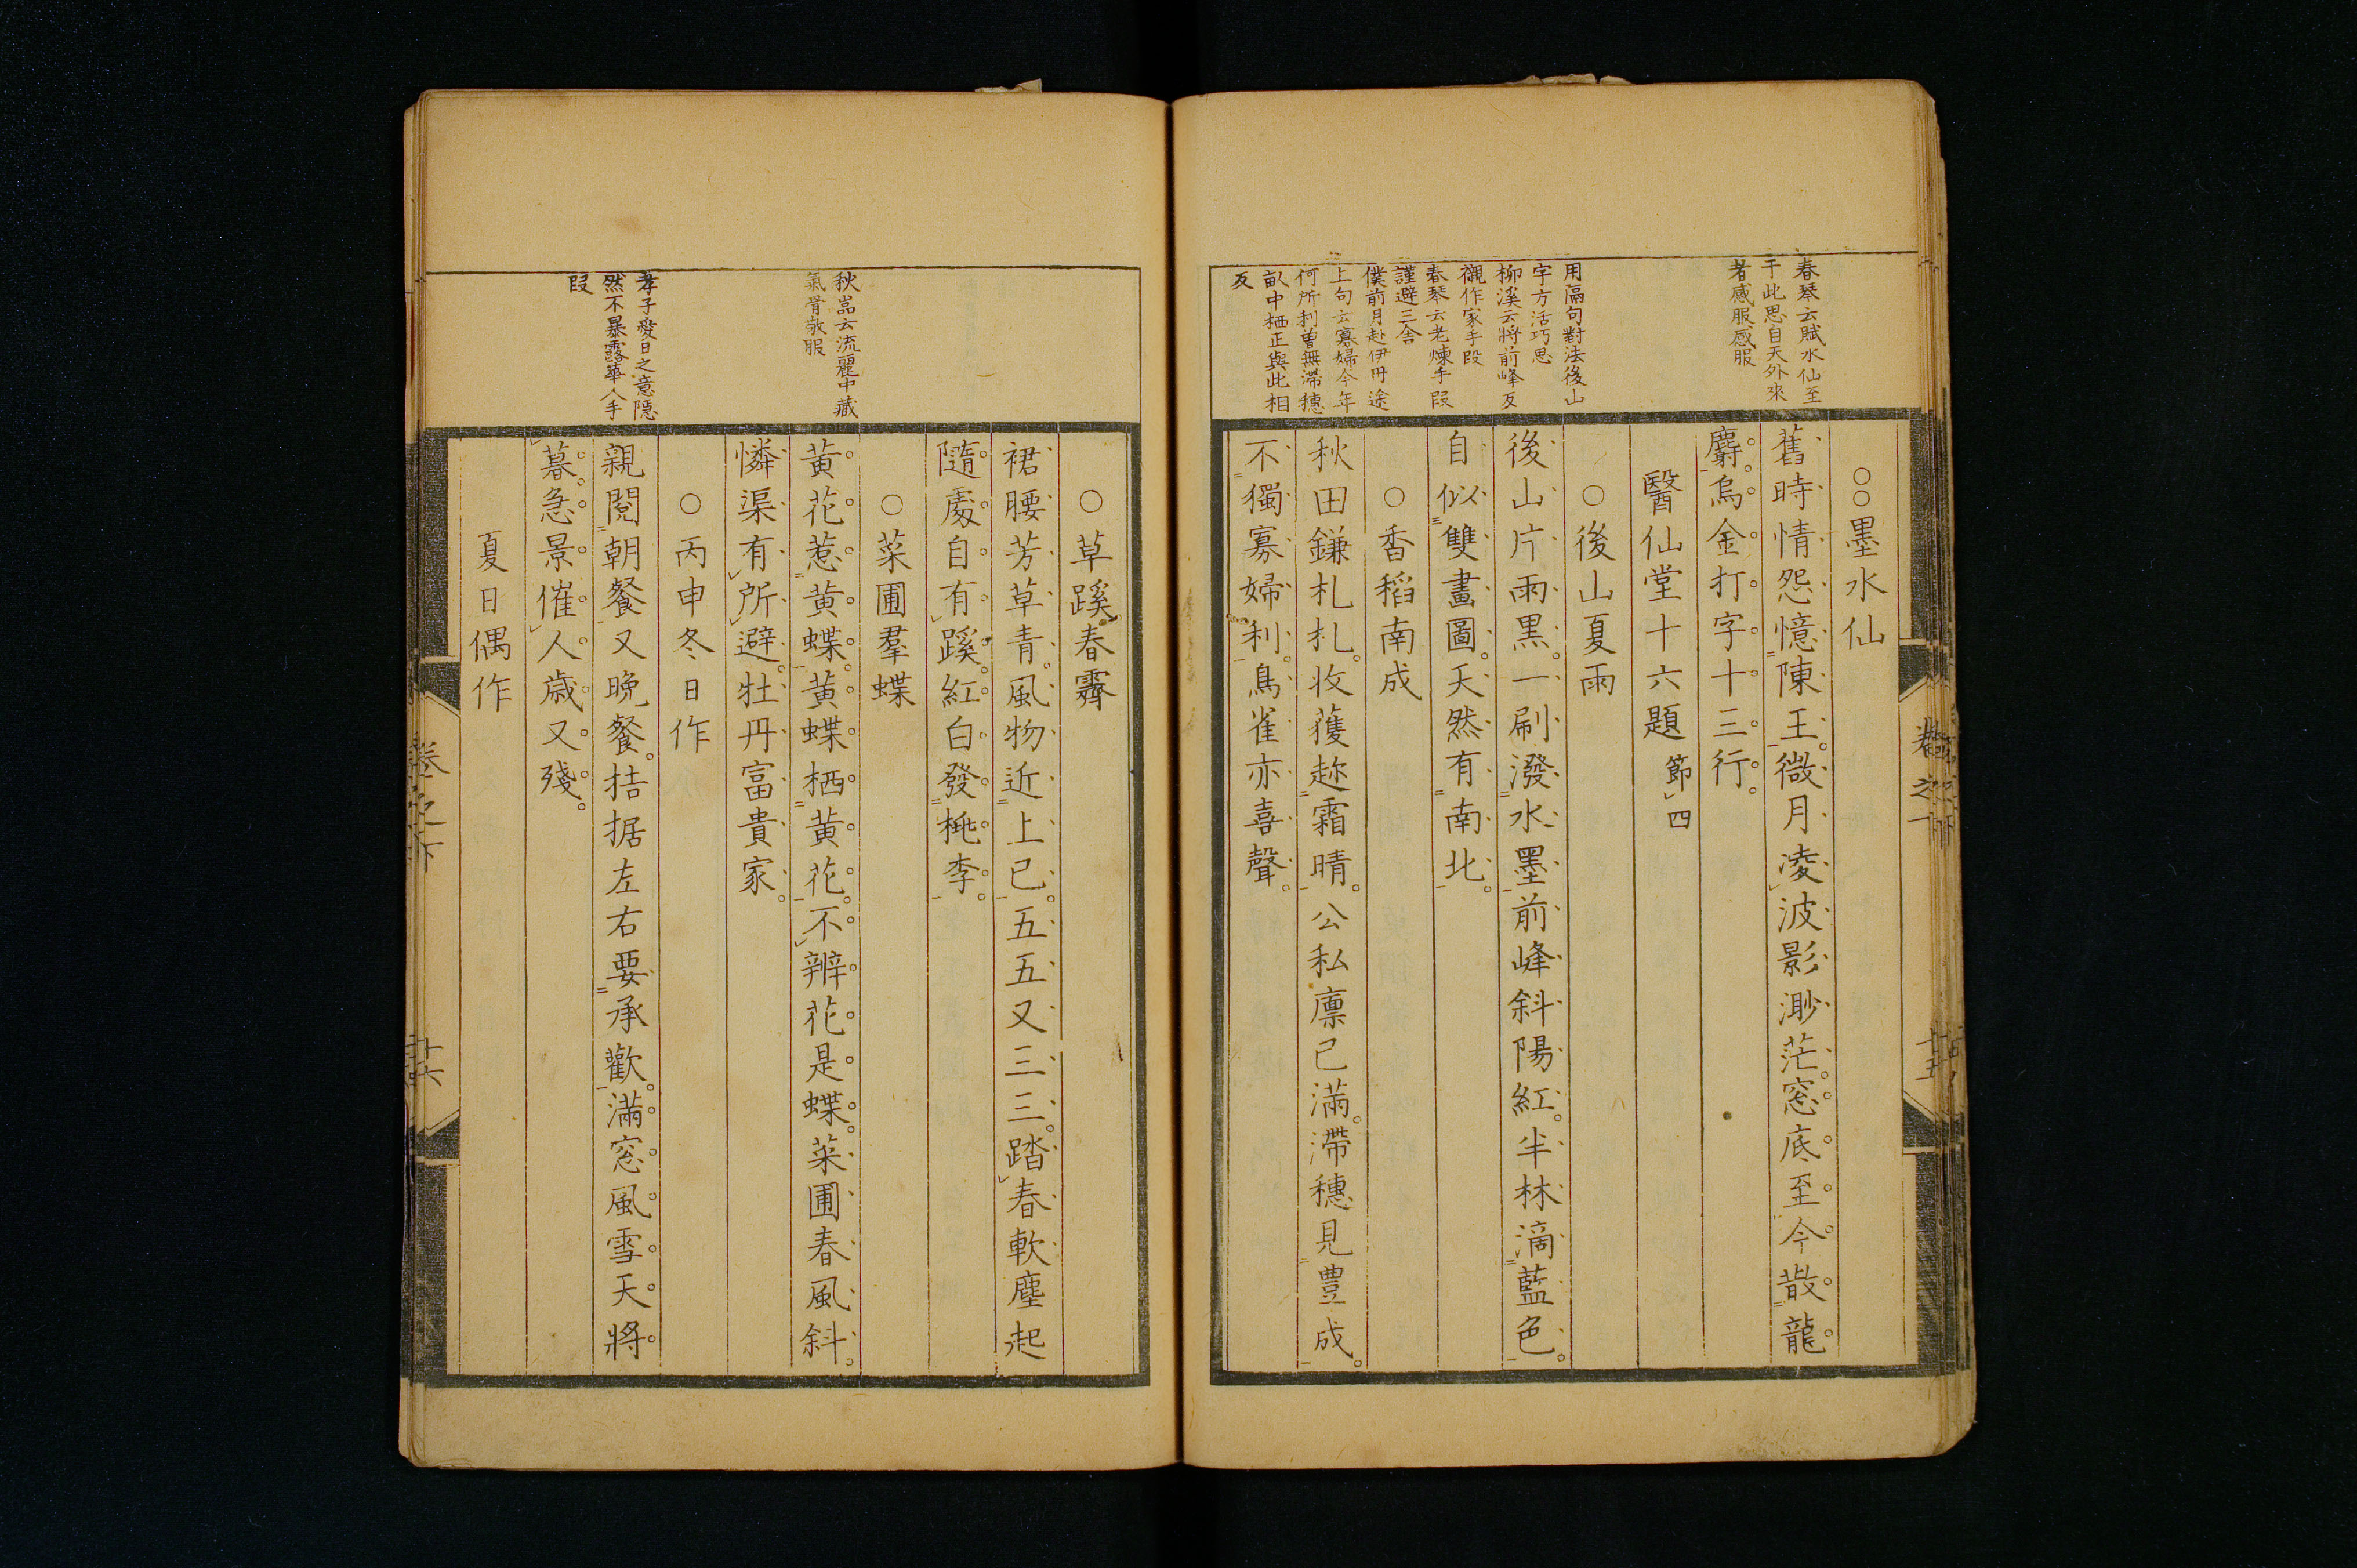 春琴云賦水仙至
于此思自天外來
者感服感服
用隔句對法後山
字方活巧思
柳溪云將前峰反
襯作家手段
春琴云老煉手段
謹避三舍
僕前月赴伊丹途
上句云寡婦今年
何所利曽無滯穗
畝中栖正與此相
反
○○墨水仙
舊時情怨憶陳王。微月凌波影渺茫。窓底至今散龍
麝。烏金打字十三行。
醫仙堂十六題 節四
○後山夏雨
後山片雨黒。一刷潑水墨前峰斜陽紅。半林滴藍色。
自似雙畫圖。天然有南北。
○香稻南成
秋田鎌札札。收獲趂霜晴。公私廪已滿。滯穗見豊成。
不獨寡婦利。鳥雀亦喜聲。
卷之下
十五
秋嵓云流麗中藏
氣骨敬服
孝子愛日之意隱
然不暴露華人手
段
○草蹊春霽
裙腰芳草青。風物近上巳。五五又三三。踏春軟塵起
隨處自有蹊。紅白發桃李。
○菜圃羣蝶
黄花惹黄蝶。黄蝶栖黄花。不辨花是蝶。菜圃春風斜。
憐渠有所避。牡丹富貴家。
○丙申冬日作
親閲朝餐又晩餐。拮据左右要承歡。滿窓風雪天將
暮。急景催人歳又殘。
夏日偶作
卷之下
十六